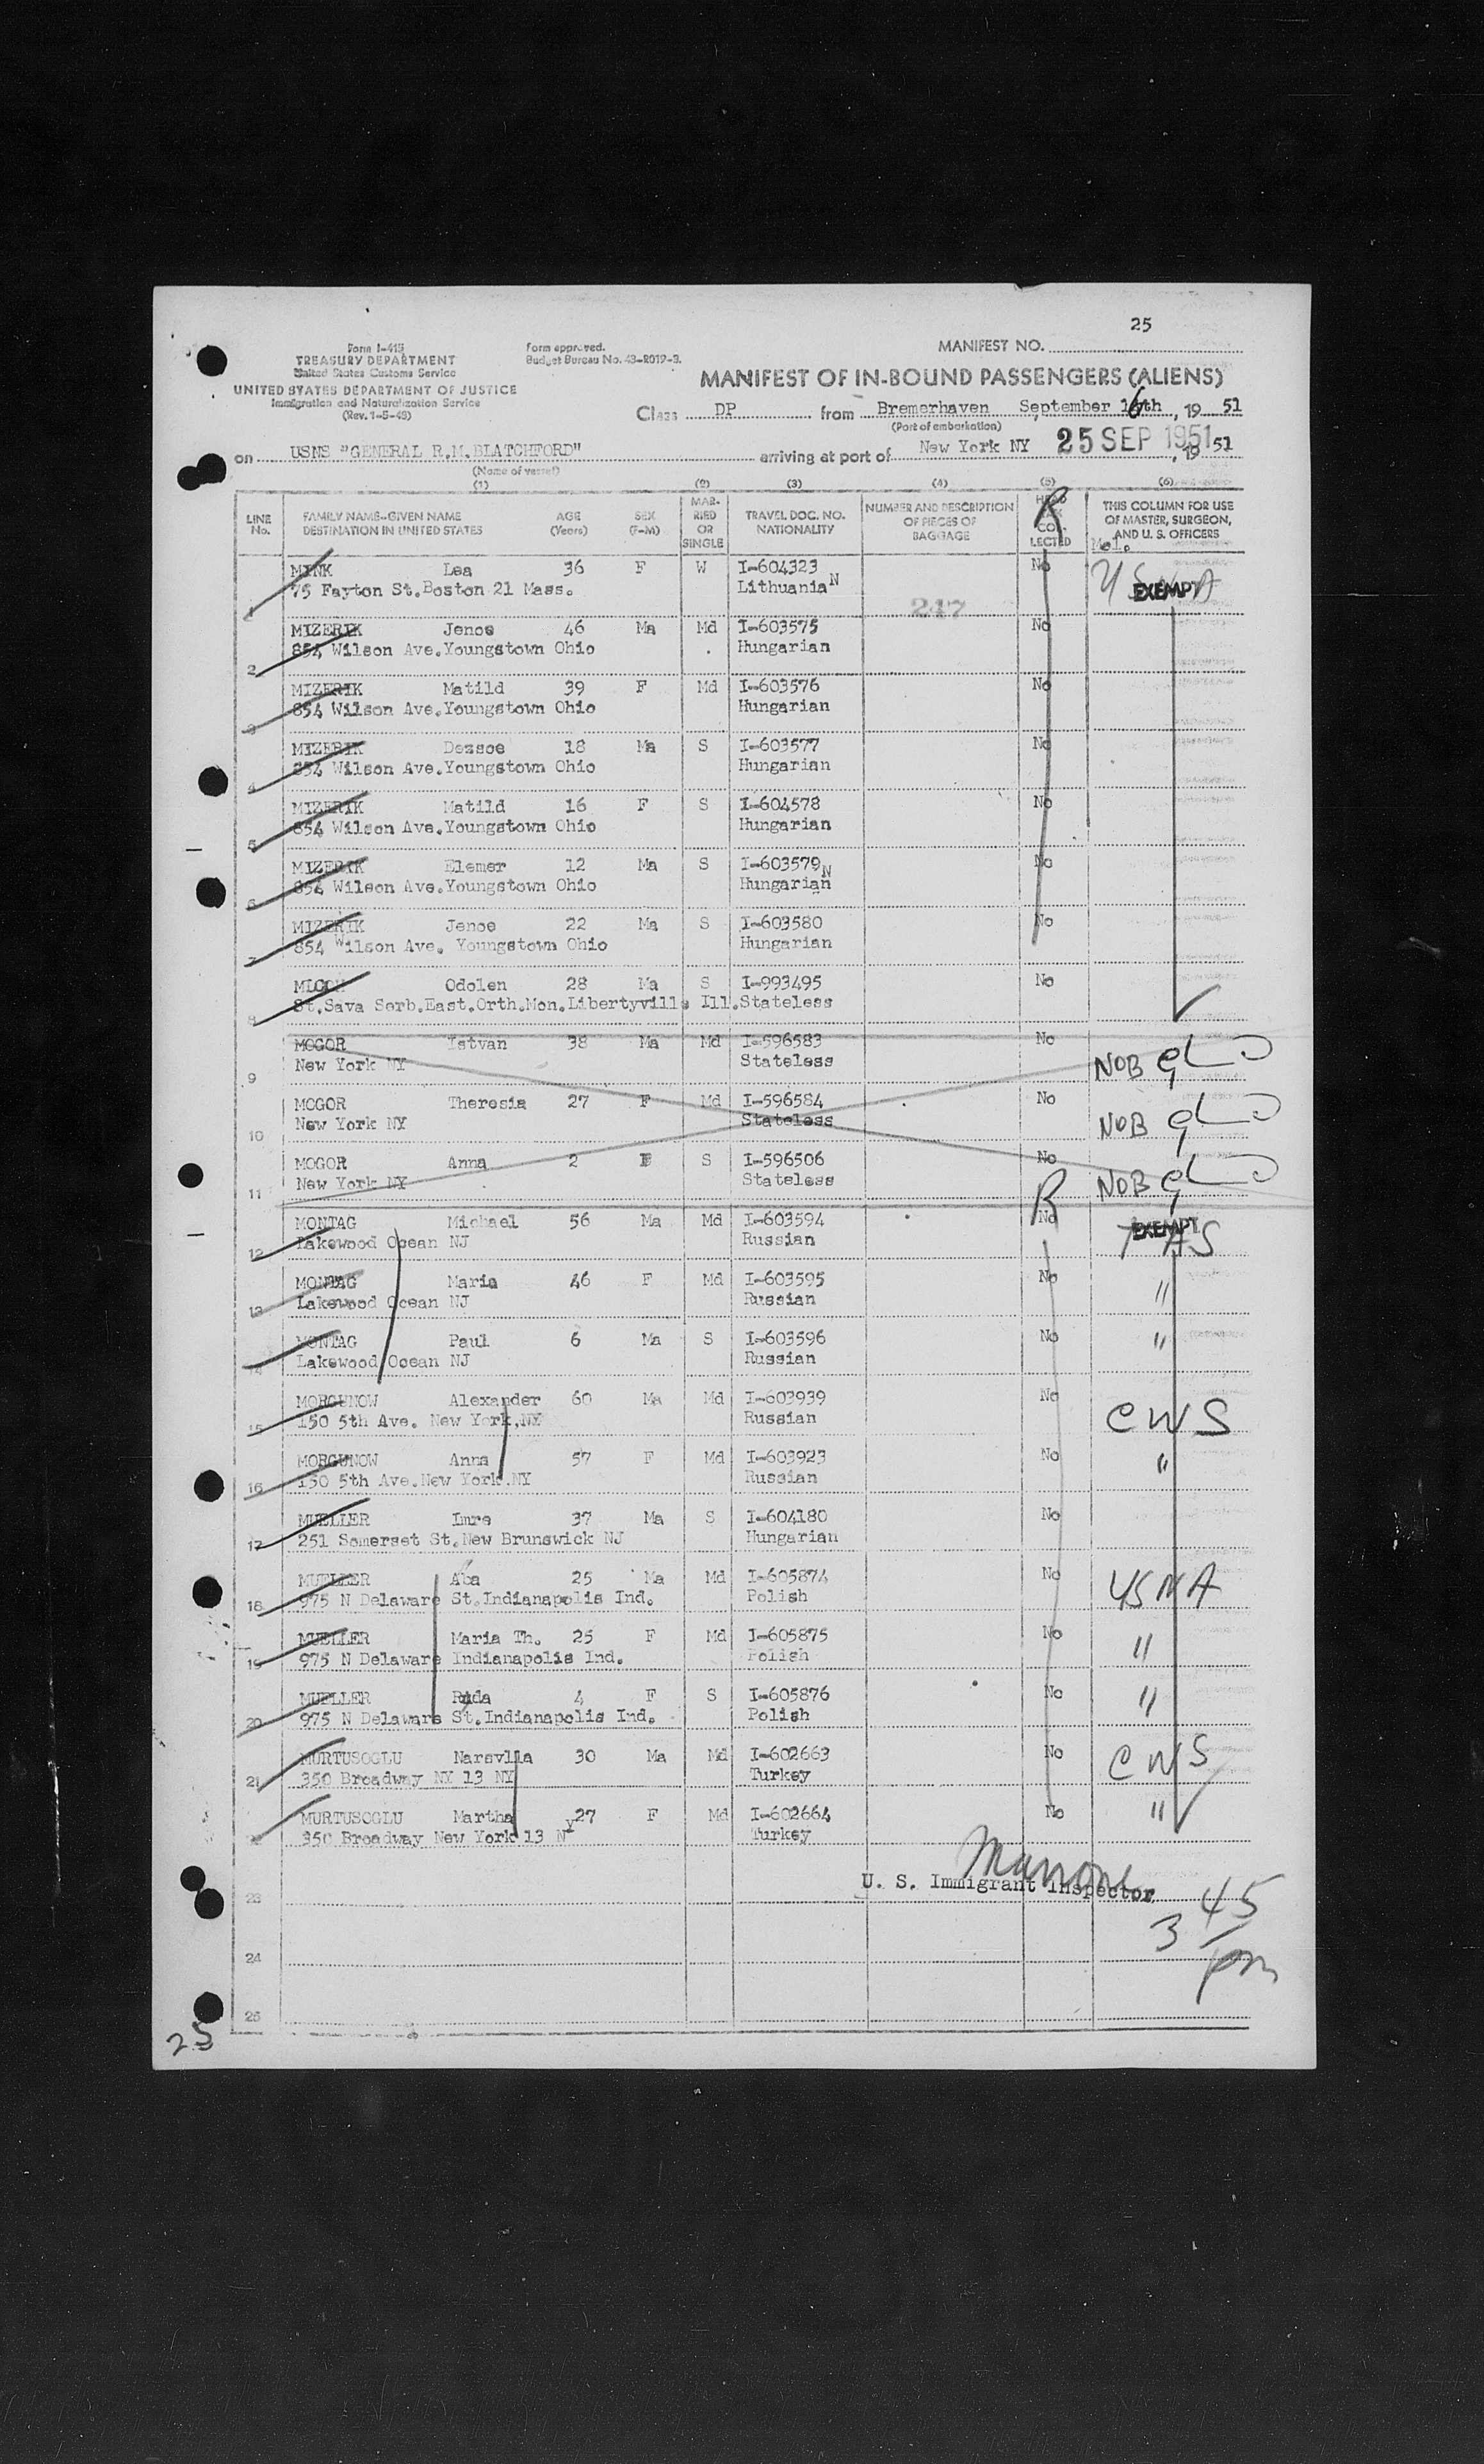 25
Form I-415
TREASURY DEPARTMENT
United States Customs Service
UNITED STATES DEPARTMENT OF JUSTICE
Immigration and Naturalization Service
(Rev. 1-5-49)
Form approved.
Budget Bureau No. 43-R019-3.
MANIFEST NO.
MANIFEST OF IN-BOUND PASSENGERS (ALIENS)
Class DP from Bremerhaven September 16th, 19 51
(Port of embarkation)
on USNS "GENERAL R.M.BLATCHFORD" arriving at port of New York NY 25 SEP 1951 , 19 51
(Name of vessel)
(1) (2) (3) (4) (5) (6)
LINE No. FAMILY NAME-GIVEN NAME DESTINATION IN UNITED STATES AGE (Years) SEX (F-M) MARRIED OR SINGLE TRAVEL DOC. NO. NATIONALITY NUMBER AND DESCRIPTION OF PIECES OF BAGGAGE HEAD TAX COLLECTED THIS COLUMN FOR USE OF MASTER, SURGEON, AND U. S. OFFICERS
R
1 MINK Lea 36 F W I-604323 No USNA EXEMPT
75 Fayton St.Boston 21 Mass. Lithuania N 247
2 MIZERIK Jenoe 46 Ma Md I-603575 No
854 Wilson Ave.Youngstown Ohio Hungarian
3 MIZERIK Matild 39 F Md I-603576 No
854 Wilson Ave.Youngstown Ohio Hungarian
4 MIZERIK Dezsoe 18 Ma S I-603577 No
854 Wilson Ave.Youngstown Ohio Hungarian
5 MIZERIK Matild 16 F S I-604578 No
854 Wilson Ave.Youngstown Ohio Hungarian
6 MIZERIK Elemer 12 Ma S I-603579 No
854 Wilson Ave.Youngstown Ohio Hungarian N
7 MIZERIK Jenoe 22 Ma S I-603580 No
854 Wilson Ave. Youngstown Ohio Hungarian
8 Odolen 28 Ma S I-993495 No
St.Sava Serb.East.Orth.Mon.Libertyville Ill.Stateless
9 MOGOR Istvan 38 Ma Md I-596583 No NOB
New York NY Stateless
10 MOGOR Theresia 27 F Md I-596584 No NOB
New York NY Stateless
11 MOGOR Anna 2 F S I-596506 No NOB
New York NY Stateless
R
12 MONTAG Michael 56 Ma Md I-603594 No EXEMPT
Lakewood Ocean NJ Russian
13 MONTAG Maria 46 F Md I-603595 No "
Lakewood Ocean NJ Russian
14 MONTAG Paul 6 Ma S I-603596 No "
Lakewood Ocean NJ Russian
15 MORGUNOW Alexander 60 Ma Md I-603939 No CWS
150 5th Ave. New York,NY Russian
16 MORGUNOW Anna 57 F Md I-603923 No "
150 5th Ave.New York.NY Russian
17 MUELLER Imre 37 Ma S I-604180 No
251 Somerset St.New Brunswick NJ Hungarian
18 MUELLER Aba 25 Ma Md I-605874 No USNA
975 N Delaware St.Indianapolis Ind. Polish
19 MUELLER Maria Th. 25 F Md I-605875 No "
975 N Delaware Indianapolis Ind. Polish
20 MUELLER 4 F S I-605876 No "
975 N Delaware St.Indianapolis Ind. Polish
21 MURTUSOGLU 30 Ma Md I-602663 No CWS
350 Broadway NY 13 NY Turkey
22 MURTUSOGLU Martha 27 F Md I-602664 No "
350 Broadway New York 13 NY Turkey
23 U. S. Immigrant Inspector
3 45
pm
24
25
25